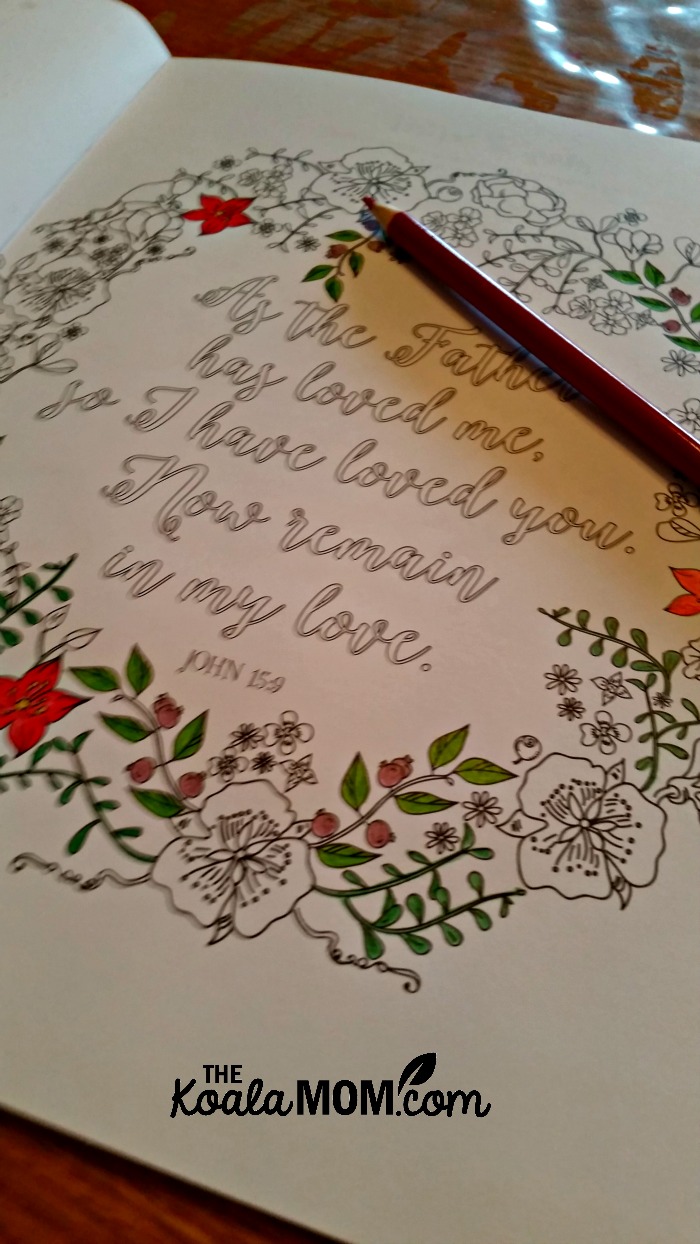 As the Father
has loved me,
so I have loved you.
Now remain
in my love.
JOHN 15:9
THE
KoalaMOM.com